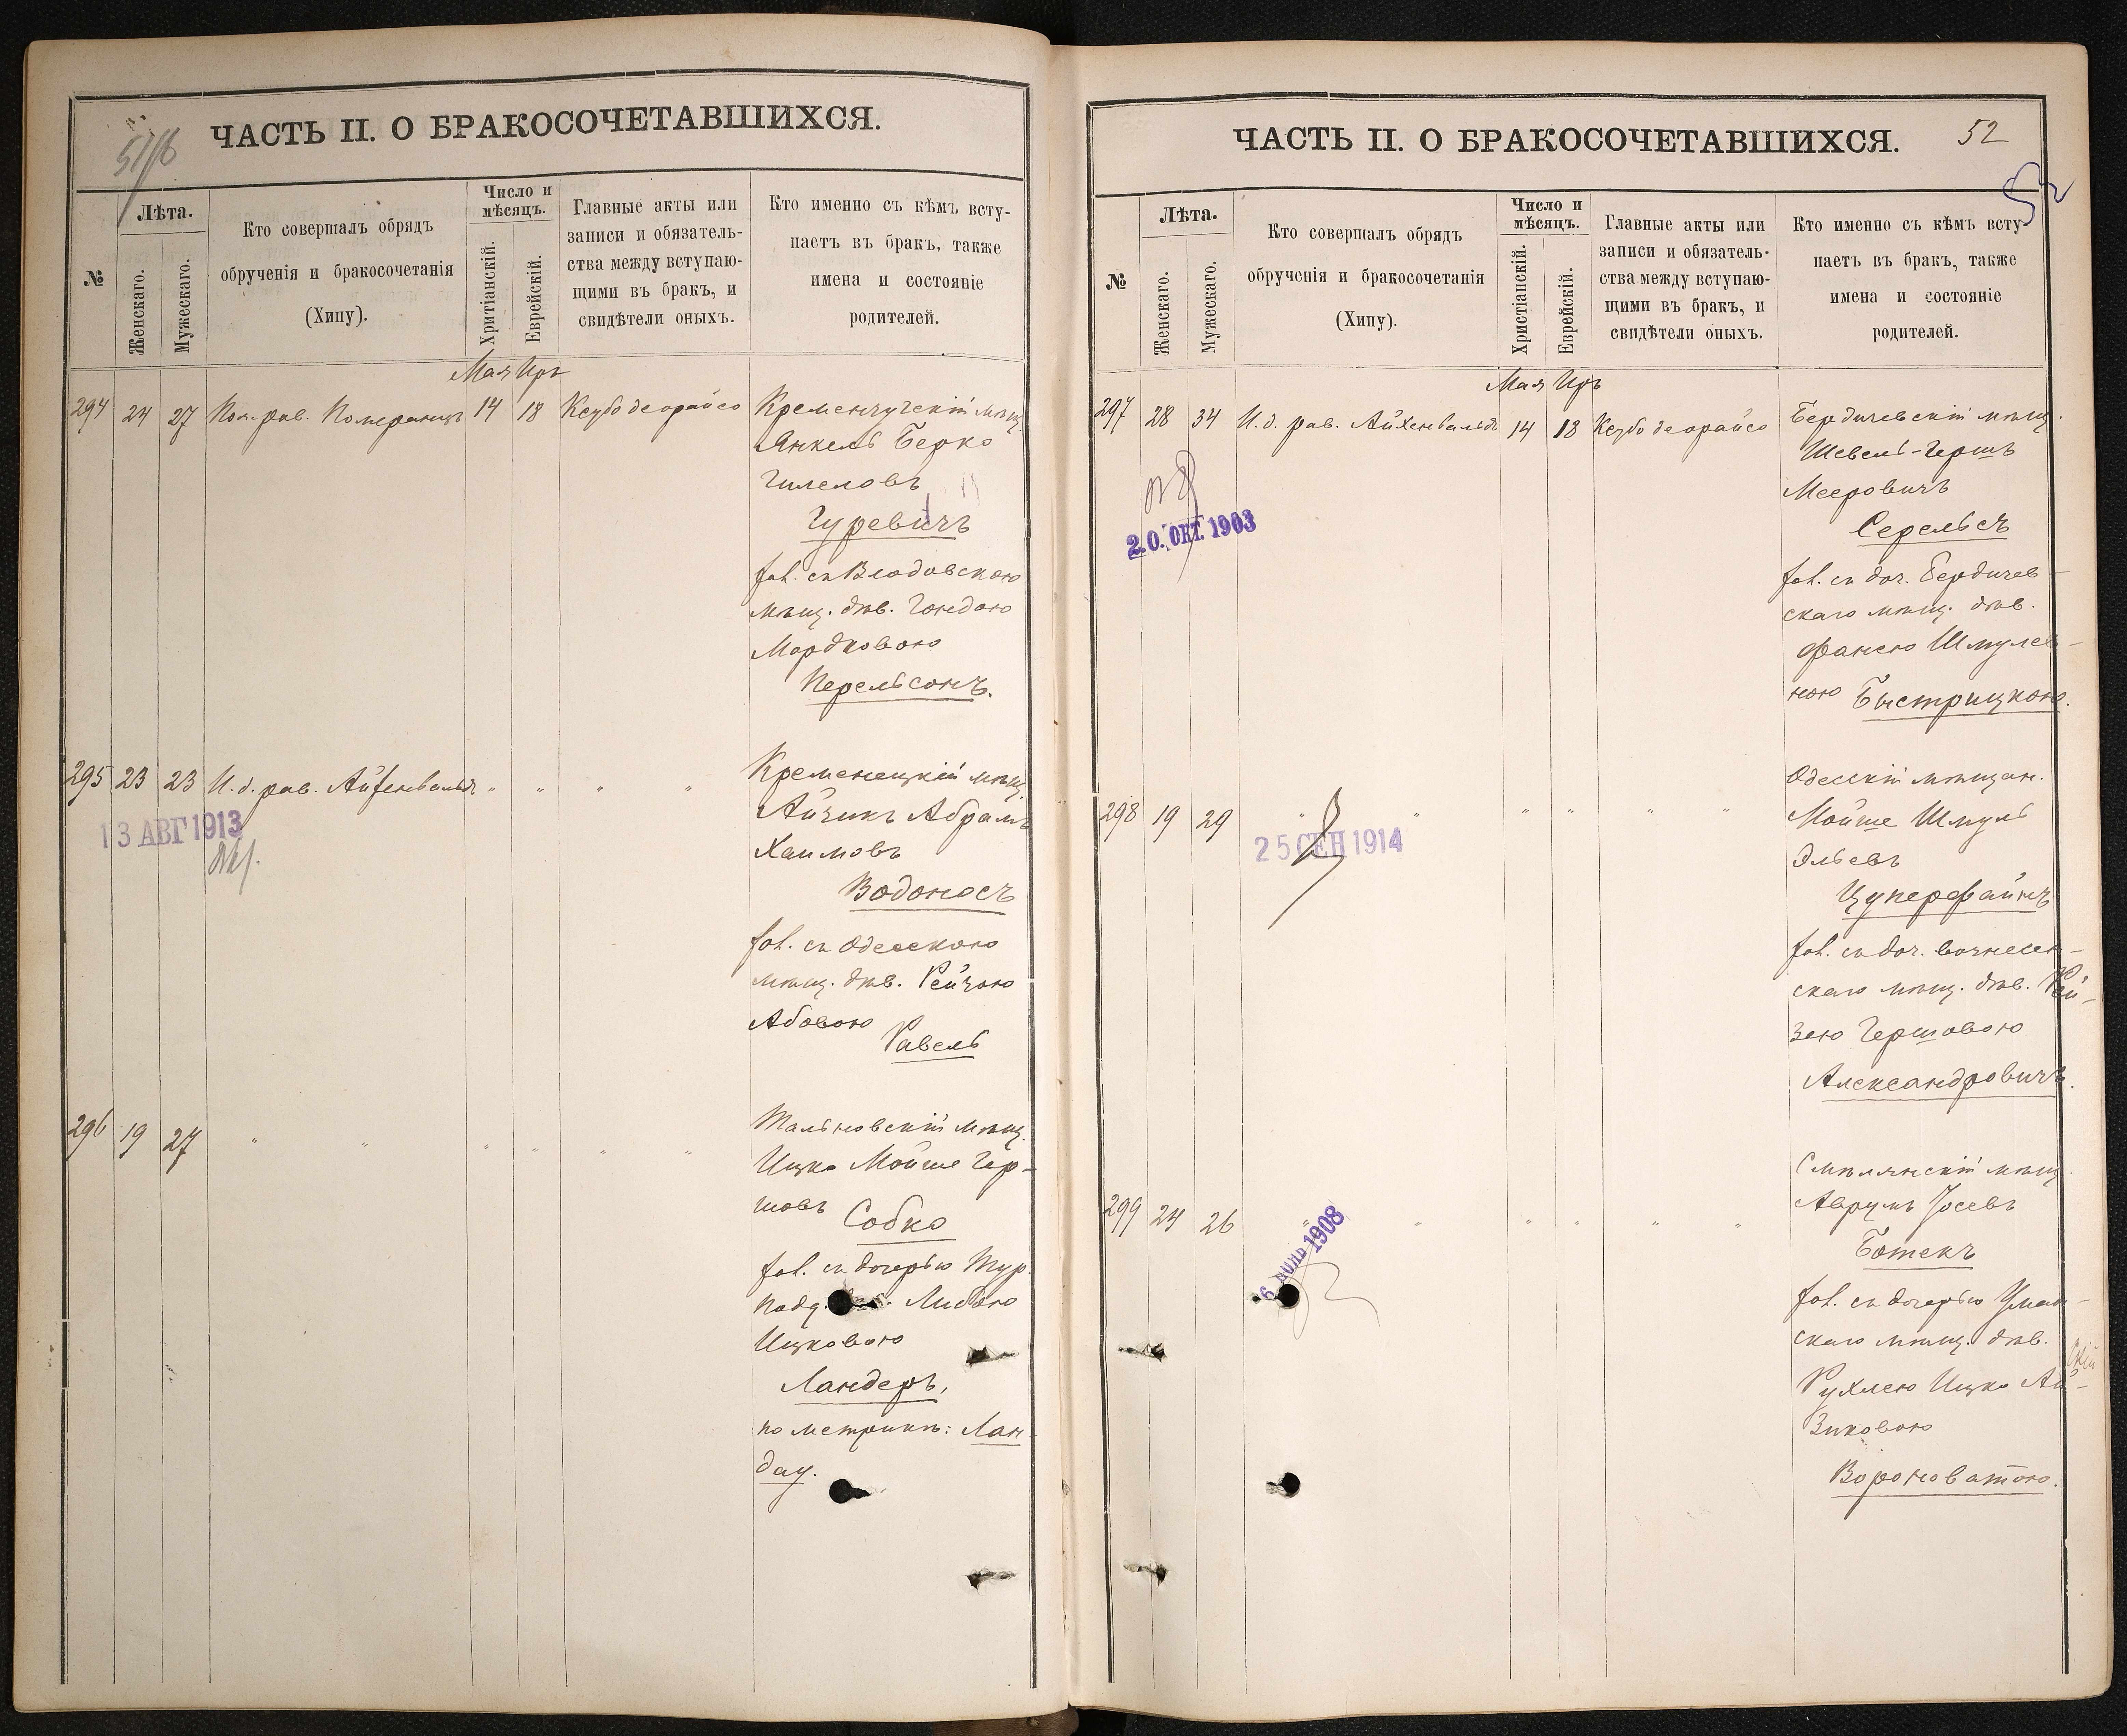 51/б
ЧАСТЬ II. О БРАКОСОЧЕТАВШИХСЯ.
№
Лѣта.
Женскаго.
Мужескаго.
Кто совершалъ обрядъ
обрученія и бракосочетанія
(Хипу).
Число и
мѣсяцъ.
Хритіанскій.
Еврейскій.
Главные акты или
записи и обязатель-
ства между вступаю-
щими въ бракъ, и
свидѣтели оныхъ.
Кто именно съ кѣмъ всту-
паетъ въ бракъ, также
имена и состояніе
родителей.
Мая Иръ
294 24 27 Пом. рав. Померанцъ 14 18 Ксубо деорайсо Кременчугскій мѣщ.
Янкель Берко
Гилеловъ
Гуревичъ
хол. съ Влодовскою
мѣщ. дѣв. Гендою
Мордковою
Перельсонъ.
295 23 23 И. д. рав. Айхенвальдъ " " " " Кременецкій мѣщ.
13 АВГ 1913
Айзикъ Абрамъ
Хаимовъ
Водоносъ
хол. съ Одесскою
мѣщ. дѣв. Рейзою
Абовою
Равель
296 19 27 " " " " " " Тальновскій мѣщ.
Ицко Мойше Гер-
шовъ Собко
хол. съ дочерью Тур.
подд. Любою
Ицковою
Ландеръ,
по метрикѣ: Лан-
дау.
ЧАСТЬ II. О БРАКОСОЧЕТАВШИХСЯ.
52
52
№
Лѣта.
Женскаго.
Мужескаго.
Кто совершалъ обрядъ
обрученія и бракосочетанія
(Хипу).
Число и
мѣсяцъ.
Христіанскій.
Еврейскій.
Главные акты или
записи и обязатель-
ства между вступаю-
щими въ бракъ, и
свидѣтели оныхъ.
Кто именно съ кѣмъ всту-
паетъ въ бракъ, также
имена и состояніе
родителей.
Мая Иръ
297 28 34 И. д. рав. Айхенвальдъ 14 18 Ксубо деорайсо Бердичевскій мѣщ.
Шевель-Гершъ
Мееровичъ
20. ОКТ. 1903
Серельсъ
хол. съ доч. Бердичев-
скаго мѣщ. дѣв.
Фанею Шмулев-
ною Быстрицкою.
Одесскій мѣщан.
298 19 29 " " " " " " Мойше Шмуль
25 СЕН 1914
Эльевъ
Цуперфайнъ
хол. съ доч. Вознесен-
скаго мѣщ. дѣв. Рей-
зею Гершовою
Александровичъ.
Смѣлянскій мѣщ.
299 24 26 " " " " " " Аврумъ Іосевъ
6 1908
Ботекъ
хол. съ дочерью Уман-
скаго мѣщ. дѣв.
Рухлею Ицко Ай-
зиковою
Вороноватою.